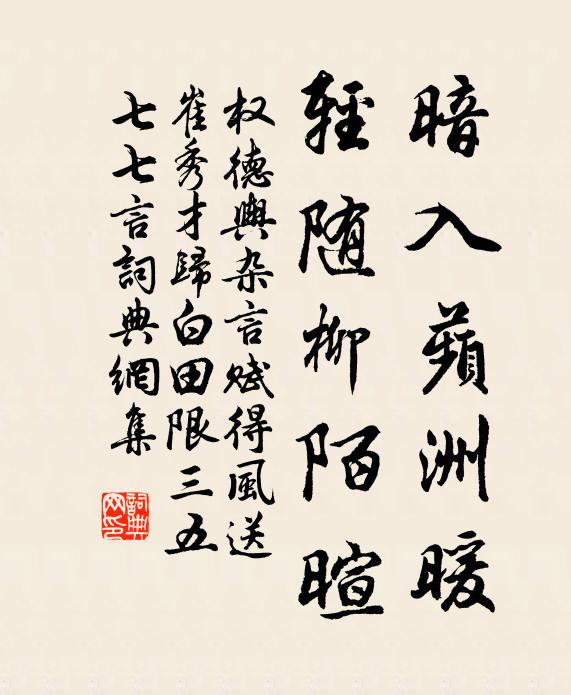 暗入蘋洲暖
輕随柳陌暄
权德輿杂言赋得風送
崔秀才歸白田限三五
七七言詞典網集
詞典
网印